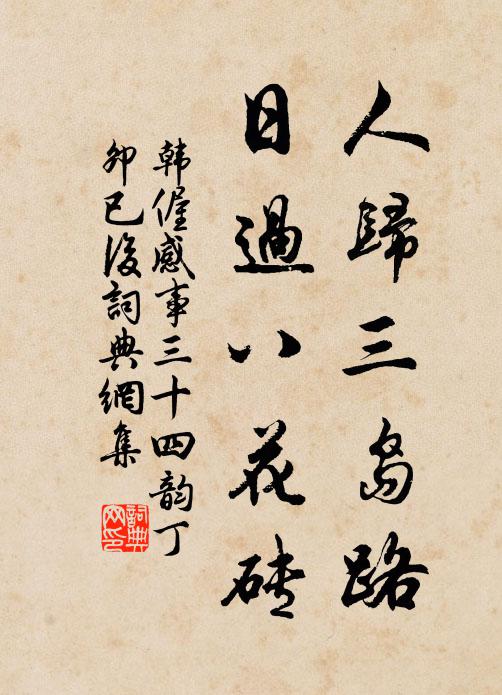 人歸三島路
日過八花磚
韩偓感事三十四韵丁
卯已後詞典網集
詞典网印